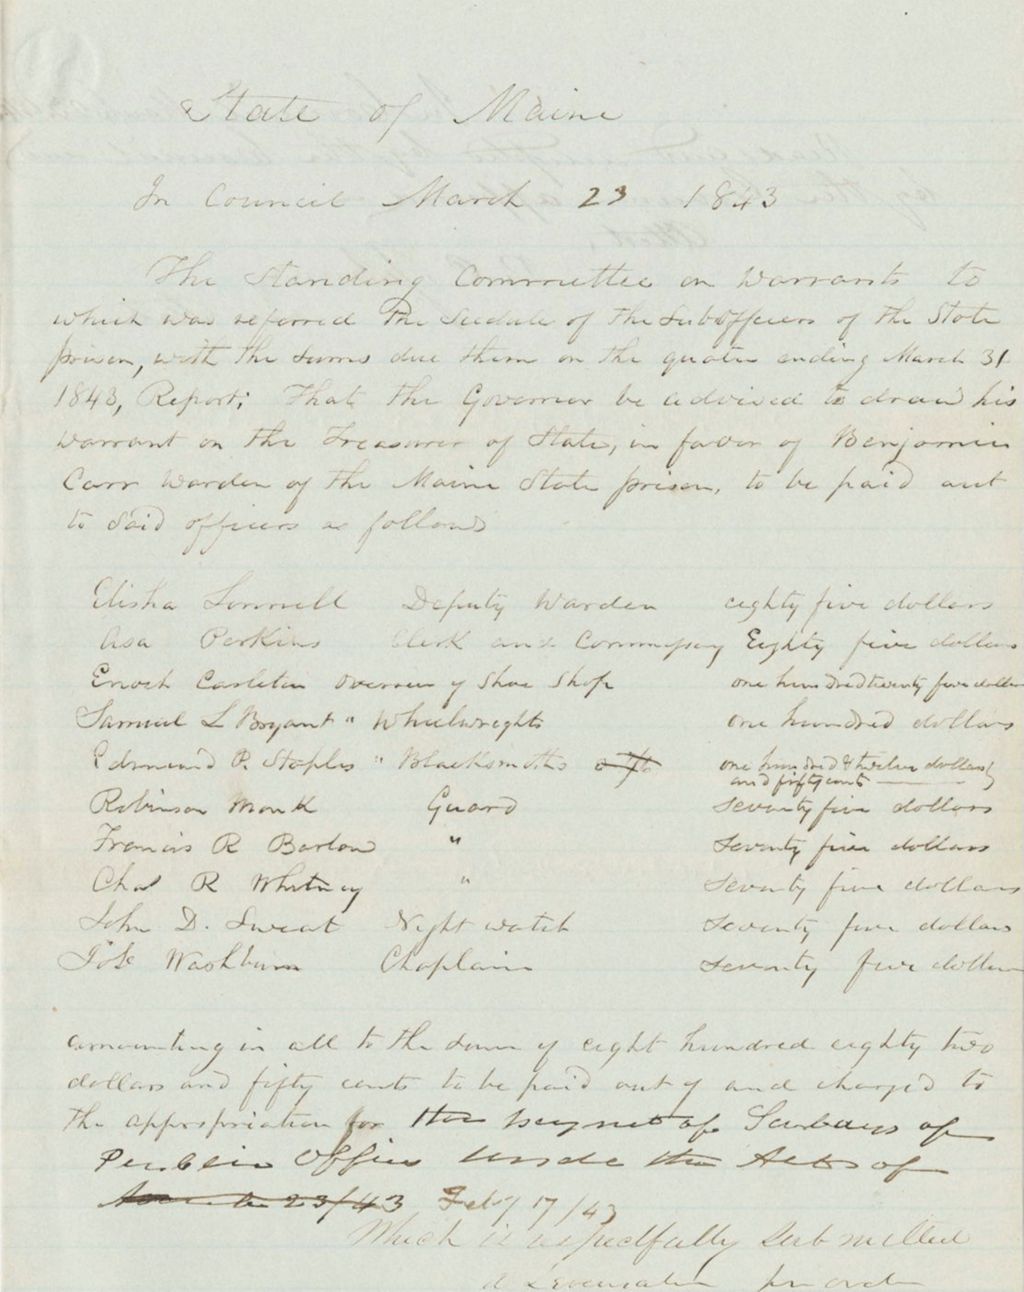 State of Maine
In Council March 23 1843
The Standing Committee on Warrants to
which was referred the Scedule of the Subofficers of the State
prison, with the sums due them on the quater ending March 31
1843, Report; That the Governor be advised to draw his
warrant on the Treasurer of State, in favor of Benjamin
Carr Warden of the Maine State prison, to be paid out
to said officers as follows
Elisha Deputy Warden eighty five dollars
Asa Perkins Clerk and Commissary Eighty five dollars
Enoch Carleton overseer of Shoe Shop one hundred twenty five dollars
Samuel L Bryant " Wheelwrights one hundred dollars
Edmund P. Staples " Blacksmiths one hundred & twelve dollars
and fifty cents
Robinson Monk Guard Seventy five dollars
Francis R Barlow " Seventy five dollars
Chas R Whitney " Seventy five dollars
John D. Sweat Night watch seventy five dollars
Job Washburn Chaplain seventy five dollars
amounting in all to the sum of eight hundred eighty two
dollars and fifty cents to be paid out of and charged to
the appropriation for the of Salarys of
Public Offices under the Acts of
March 23/43 Feby 17/43
Which is respectfully submitted
per order